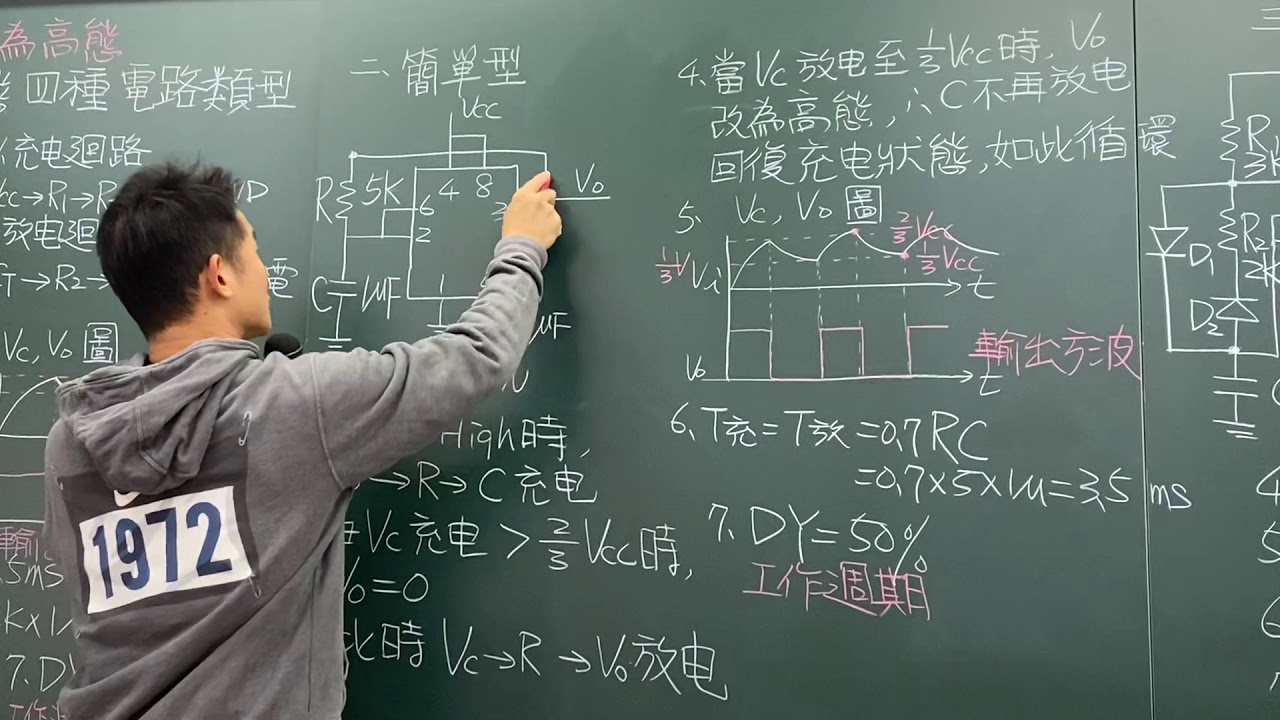 為高態
四種電路類型
充電迴路
Vcc→R1→R
放電迴
→R2→
電
Vc, Vo 圖
輸
.5ms
K×1
7. DY
二、簡單型
Vcc
R
5K
6
4
8
3
Vo
2
C
1μF
1
μF
High時,
→R→C充电
Vc充电 > 2/3 Vcc時,
Vo=0
此時 Vc→R→Vo放电
4.當Vc放电至1/3Vcc時, Vo
改為高態, ∴C不再放电
回復充电狀態,如此循環
5、Vc, Vo 圖
2/3 Vcc
1/3 V
1/3 Vcc
Vi
t
Vo
t
輸出方波
6、T充=T放=0.7RC
=0.7×5×1μ=3.5 ms
7、DY=50%
工作週期
三
R1
3K
D1
R2
2K
D2
C
4
5
6
1972